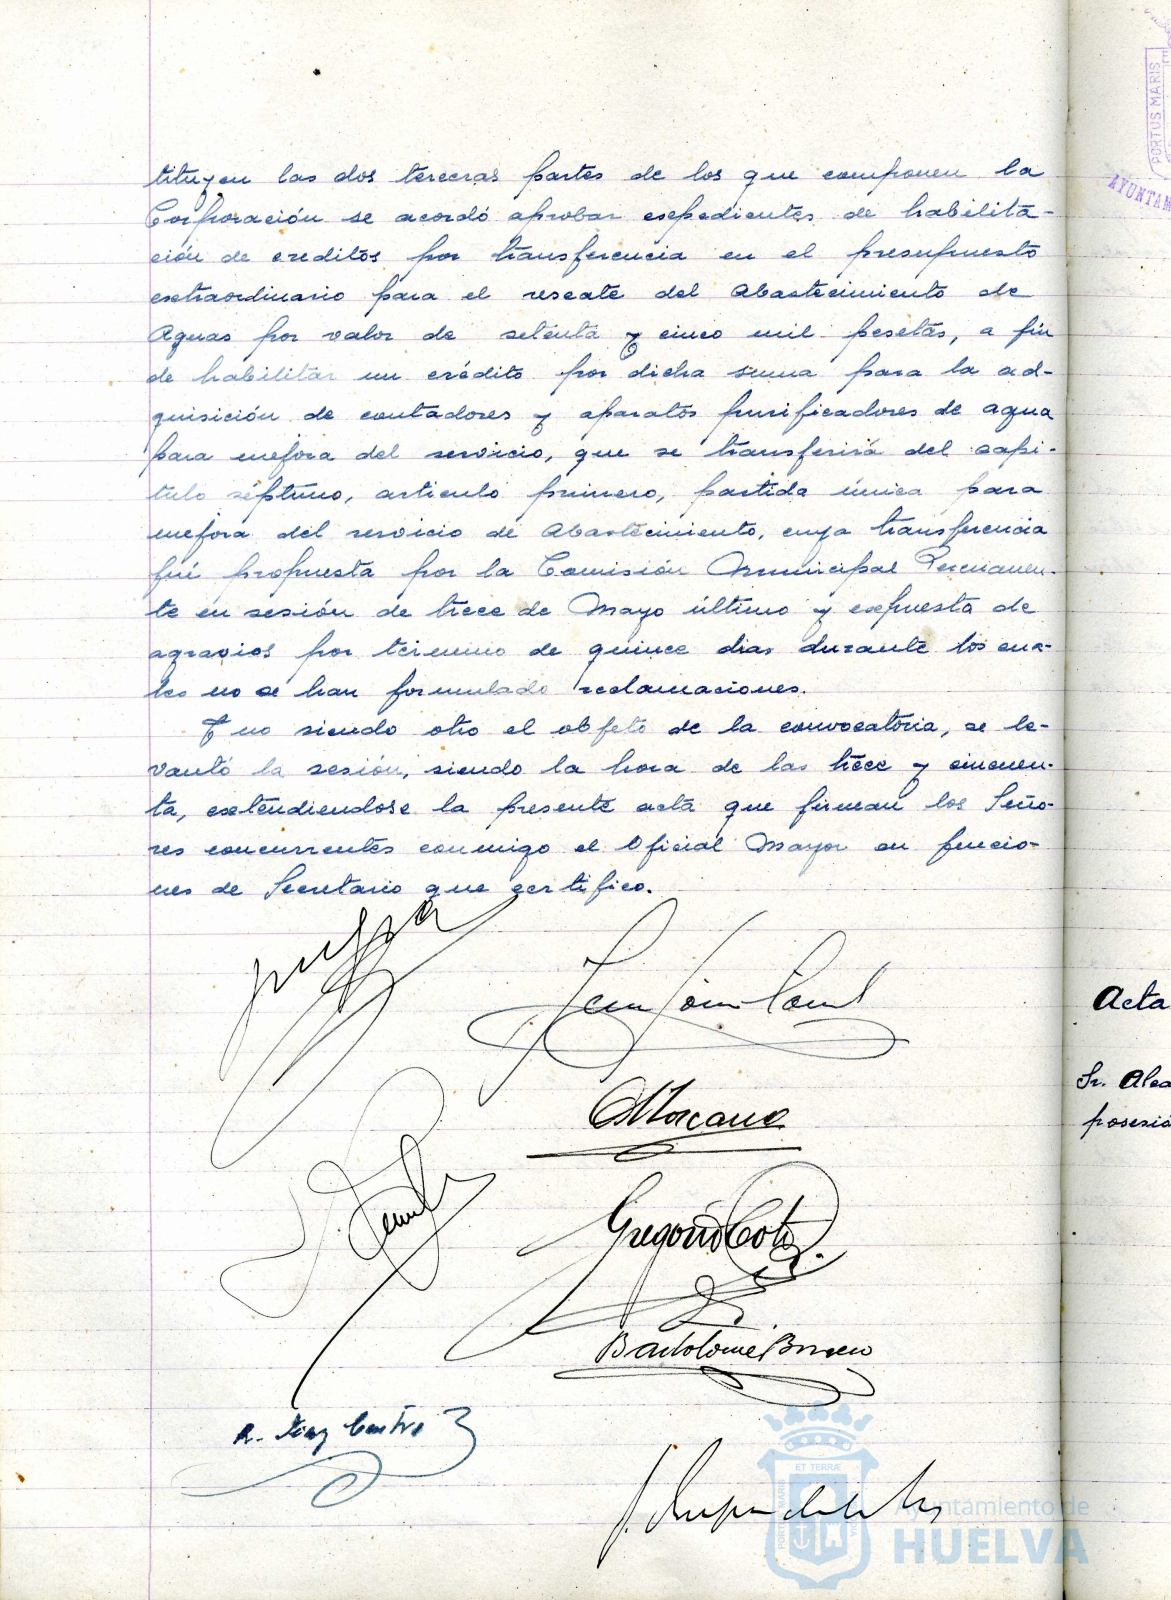 tituyen las dos terceras partes de los que componen la
Corporación se acordó aprobar expedientes de habilita-
ción de creditos por transferencia en el presupuesto
extraordinario para el rescate del Abastecimiento de
Aguas por valor de setenta y cinco mil pesetas, a fin
de habilitar un crédito por dicha suma para la ad-
quisición de contadores y aparatos purificadores de agua
para mejora del servicio, que se transferirá del capi-
tulo séptimo, articulo primero, partida única para
mejora del servicio de Abastecimiento, cuya transferencia
fué propuesta por la Comisión Municipal Permanen-
te en sesión de trece de Mayo último y expuesta de
agravios por término de quince dias durante los cua-
les no se han formulado reclamaciones.
Y no siendo otro el objeto de la convocatoria, se le-
vantó la sesión, siendo la hora de las trece y cincuen-
ta, extendiendose la presente acta que firman los Seño-
res concurrentes conmigo el Oficial Mayor en funcio-
nes de Secretario que certifico.
Gregorio Coto
Bartolomé
R. Diaz Castro
PORTUS MARIS
AYUNTAM
Acta
Sr. Alca
posesio
ET TERRÆ
PORTUS MARIS
Ayuntamiento de
HUELVA